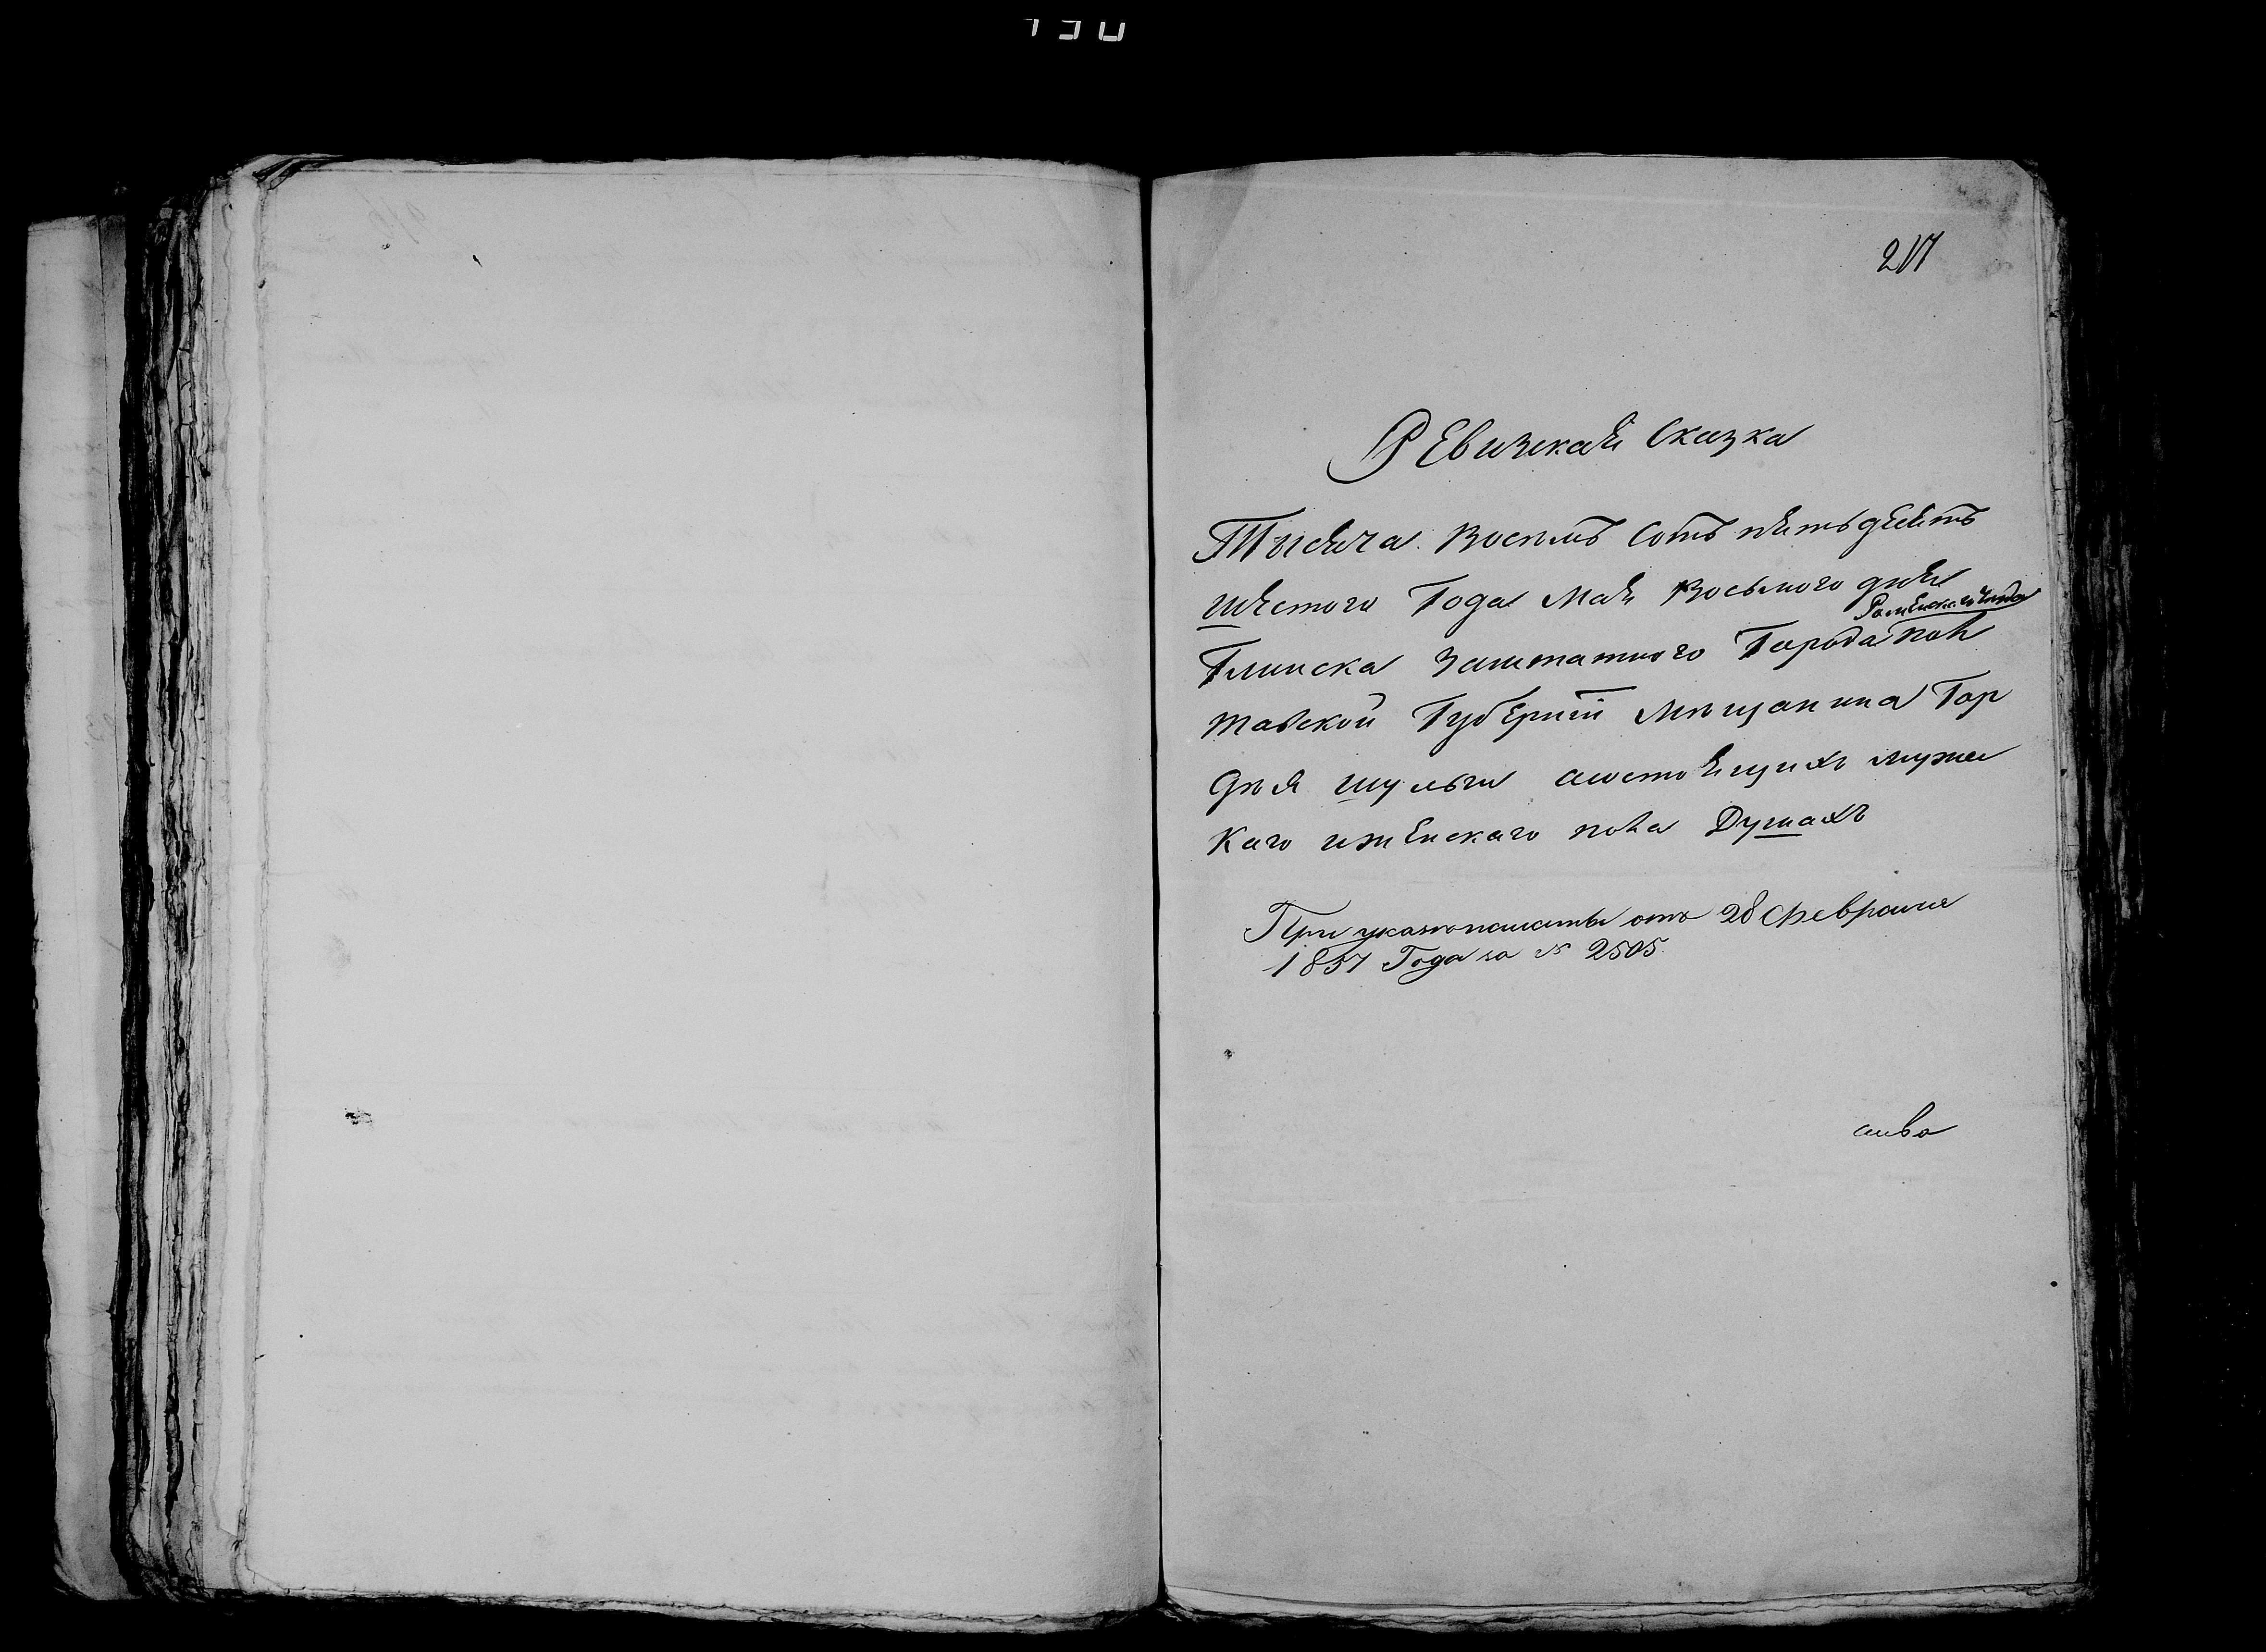 217
Ревизская Сказка
Тысяча Восемъ Сотъ пятьдесятъ
шестого Года Мая Восьмого дня
Роменского уезда
Глинска Заштатного Города Пол
тавской Губернiи Мещанина Гор
дея шульги состоящихъ мужес
каго и женскаго пола Душахъ
При указе палаты отъ 28 февраля
1857 Года за № 2505.